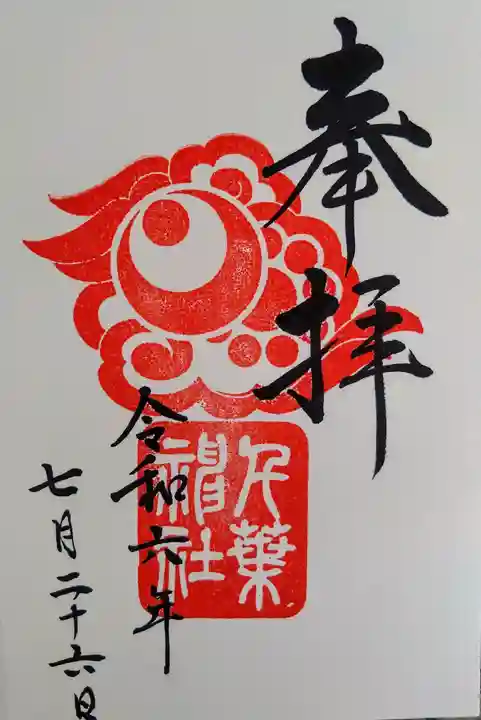 奉拝
千葉
神社
令和六年
七月二十六日